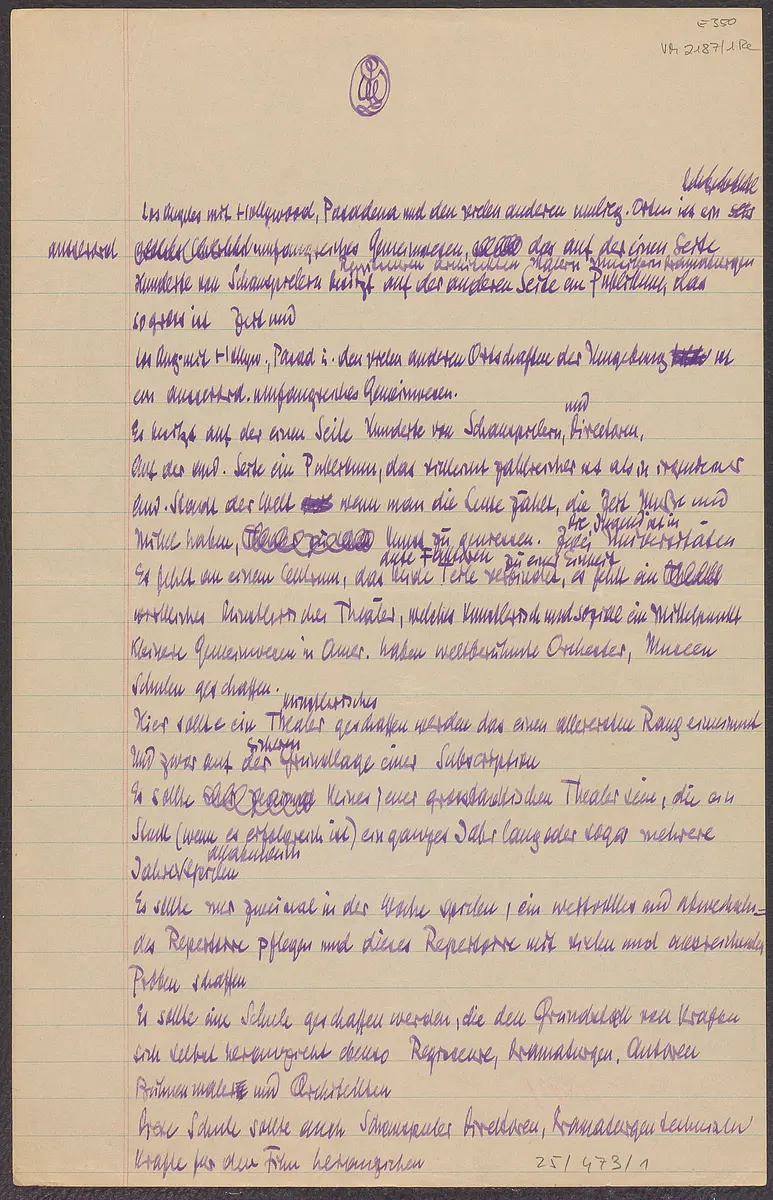 E 350
VM 2187/1 Re
Los Angeles mit Hollywood, Pasadena und den vielen anderen umlieg. Orten ist ein
ausserord umfangreiches Gemeinwesen, das auf der einen Seite
Regisseuren Architekten Malern Dramaturgen
Hunderte von Schauspielern besitzt auf der anderen Seite ein Publikum, das
so gross ist Zeit und
Los Ang. mit Hollyw., Pasad u. den vielen anderen Ortschaften der Umgebung ist
ein ausserord. umfangreiches Gemeinwesen.
und
Es besitzt auf der einen Seite Hunderte von Schauspielern, Directoren,
Auf der and. Seite ein Publikum, das vielleicht zahlreicher ist als in irgendeiner
and. Stadt der Welt wenn man die Leute zählt, die Zeit Musse und
die Jugend ist in
Mühe haben, Kunst zu geniessen. Zwei Universitäten
diese Faktoren zu einer Einheit
Es fehlt an einem Centrum, das beide Teile verbindet, es fehlt ein
wirkliches künstlerisches Theater, welches künstlerisch und sozial ein Mittelpunkt
Kleinere Gemeinwesen in Amer. haben weltberühmte Orchester, Museen
Schulen geschaffen.
künstlerisches
Hier sollte ein Theater geschaffen werden das einen allerersten Rang einnimmt
sicheren
Und zwar auf der Grundlage einer Subscription
Es sollte keines jener grosstädtischen Theater sein, die ein
Stück (wenn es erfolgreich ist) ein ganzes Jahr lang oder sogar mehrere
allabendlich
Jahre spielen
Es sollte nur zweimal in der Woche spielen, ein wertvolles und abwechseln=
des Repertoire pflegen und dieses Repertoire mit vielen und ausreichenden
Proben schaffen
Es sollte eine Schule geschaffen werden, die den Grundstock von Kräften
sich selbst heranzieht ebenso Regisseure, Dramaturgen, Autoren
Bühnenmaler und Architekten
Diese Schule sollte auch Schauspieler Direktoren, Dramaturgen
Kräfte für den Film heranziehen
25/473/1